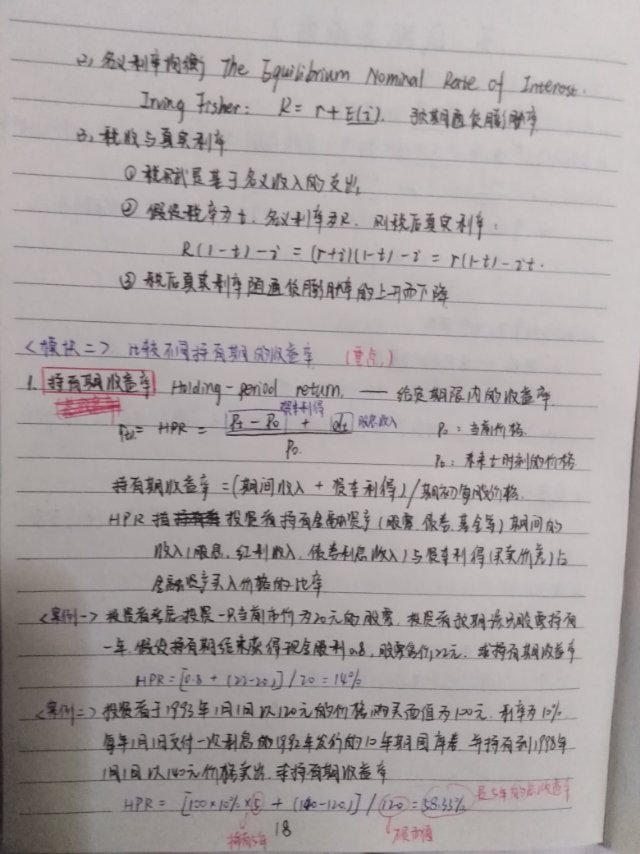 2、名义利率均衡, The Equilibrium Nominal Rate of Interest.
Irving Fisher: R = r + E(i). 预期通货膨胀率
3、税收与真实利率
① 税赋是基于名义收入的支出,
② 假设税率为t、名义利率为R. 则税后真实利率:
R(1-t)-i = (r+i)(1-t)-i = r(1-t)-it.
③ 税后真实利率随通货膨胀率的上升而下降
<模块二> 比较不同持有期的收益率 (重点)
1. 持有期收益率 Holding-period return. — 给定期限内的收益率
资本利得
= HPR = Pt - P0 + dt 股息收入 P0: 当前价格
P0 Pt: 未来t时刻的价格
持有期收益率 = (期间收入 + 资本利得) / 期初每股价格.
HPR 指 投资者持有金融资产(股票、债券、基金等)期间的
收入(股息、红利收入、债券利息收入)与资本利得(买卖价差)占
金融资产买入价格的比率
<案例一> 投资者考虑投资一只当前市价为20元的股票. 投资者预期该只股票持有
一年. 假设持有期结束获得现金股利0.8, 股票售价22元. 求持有期收益率
HPR = [0.8 + (22-20)] / 20 = 14%
<案例二> 投资者于1993年1月1日以120元的价格购买面值为100元. 利率为10%.
每年1月1日支付一次利息的1992年发行的10年期国库券. 并持有到1998年
1月1日以140元价格卖出. 求持有期收益率
HPR = [100×10%×5 + (140-120)] / 120 = 58.33% 是5年的总收益率
持有5年
18